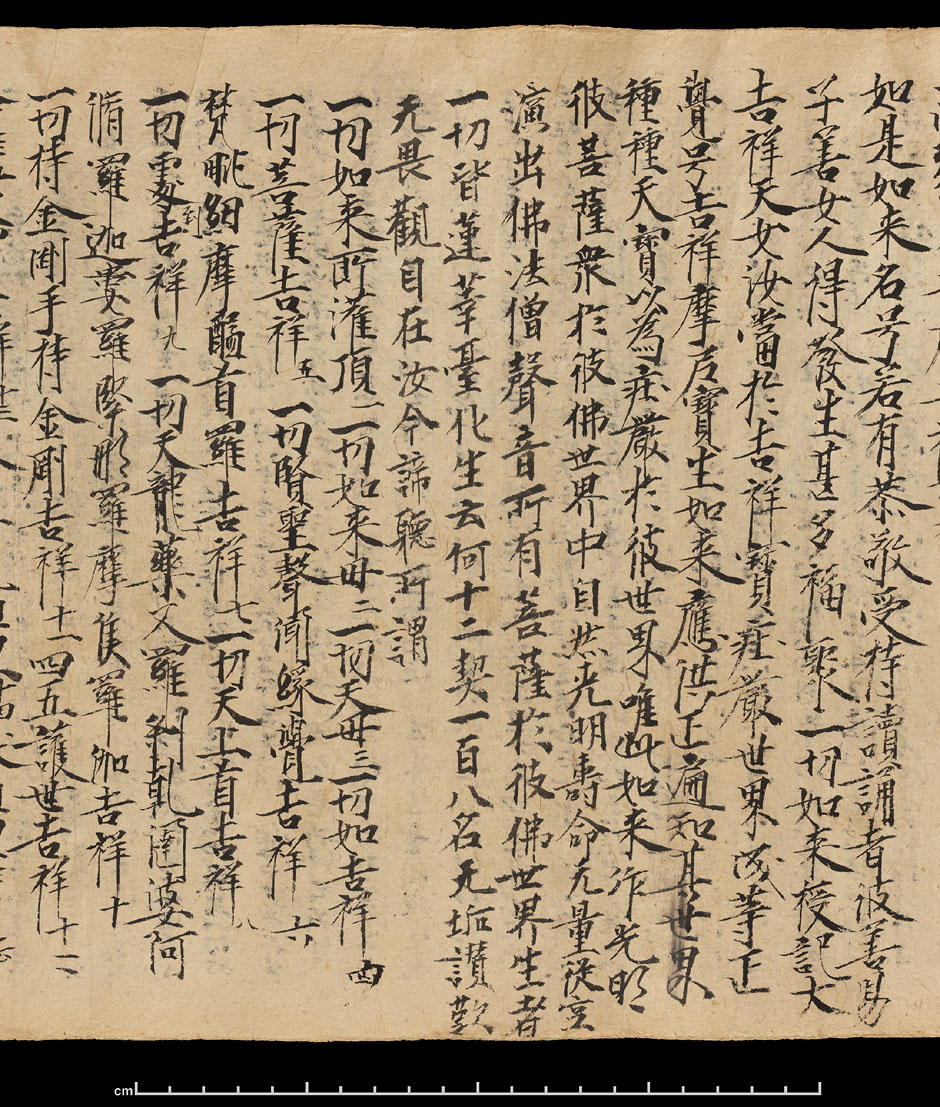 如是如来名号若有恭敬受持讀誦者彼善男
子善女人得發生甚多福聚一切如来授記大
吉祥天女汝當於吉祥寳莊嚴世界成等正
覺号吉祥摩尼寳生如来應供正遍知其世界
種種天寳以為莊嚴於彼世界唯此如来作光明
彼菩薩衆於彼佛世界中自然光明壽命无量從空
演出佛法僧聲音所有菩薩於彼佛世界生者
一切皆蓮華臺化生云何十二契一百八名无垢讃歎
无畏觀自在汝今諦聽所謂
一切如来所灌頂一一切如来毋二一切天毋三一切如吉祥四
一切菩薩吉祥五一切賢聖聲聞緣覺吉祥六
梵毗紐摩醯首羅吉祥七一切天上首吉祥八
一切處到吉祥九一切天龍藥叉羅剎乹闥婆阿
脩羅迦婁羅緊那羅摩睺羅伽吉祥十
一切持金剛手持金剛吉祥十一四五護世吉祥十二